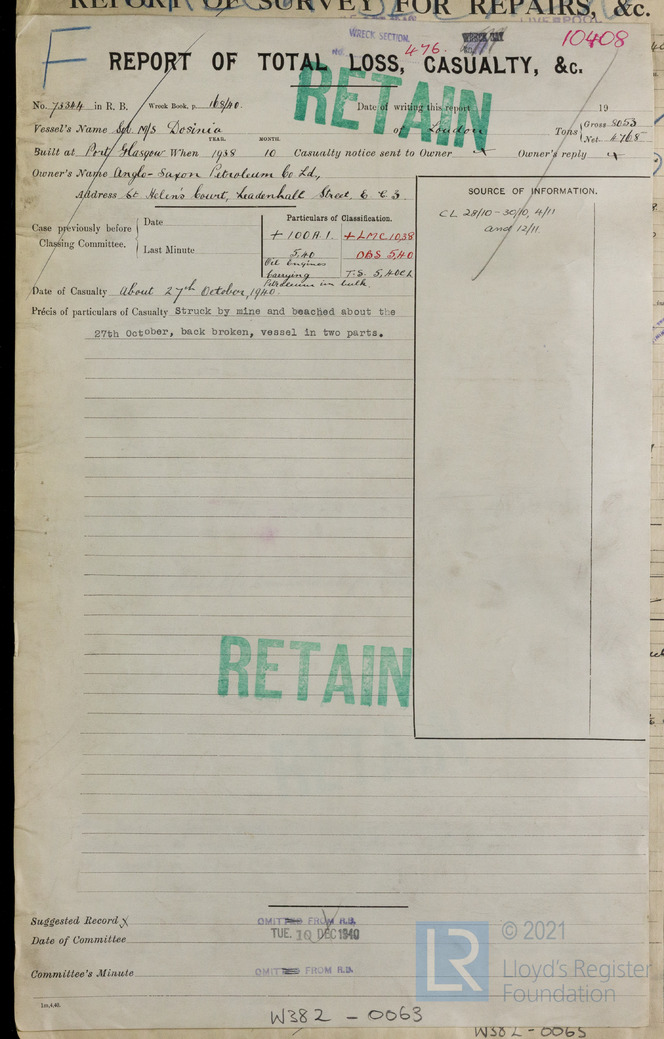 REPORT OF SURVEY FOR REPAIRS, &c.
WRECK SECTION.
476.
10408
F
REPORT OF TOTAL LOSS, CASUALTY, &c.
RETAIN
No. 73344 in R. B. Wreck Book, p. 168/40. Date of writing this report 19
Vessel's Name M/S Dosinia of London Tons Gross 8053
Net 4768
YEAR. MONTH.
Built at Port Glasgow When 1938 10 Casualty notice sent to Owner x Owner's reply x
Owner's Name Anglo-Saxon Petroleum Co Ld,
Address St. Helen's Court, Leadenhall Street, E C 3.
SOURCE OF INFORMATION.
CL 28/10 - 30/10, 4/11
and 12/11
Case previously before Classing Committee.
Date
Last Minute
Particulars of Classification.
+ 100A1. + LMC 10,38
5,40 DBS 5,40
Oil Engines
Carrying T.S. 5,40CL
Petroleum in bulk.
Date of Casualty About 27th October, 1940.
Précis of particulars of Casualty Struck by mine and beached about the
27th October, back broken, vessel in two parts.
RETAIN
Suggested Record x
OMITTED FROM R.B.
Date of Committee TUE. 10 DEC 1940
Committee's Minute OMITTED FROM R.B.
1m,4,40.
LR
© 2021
Lloyd's Register
Foundation
W382 - 0063
W382 - 0065